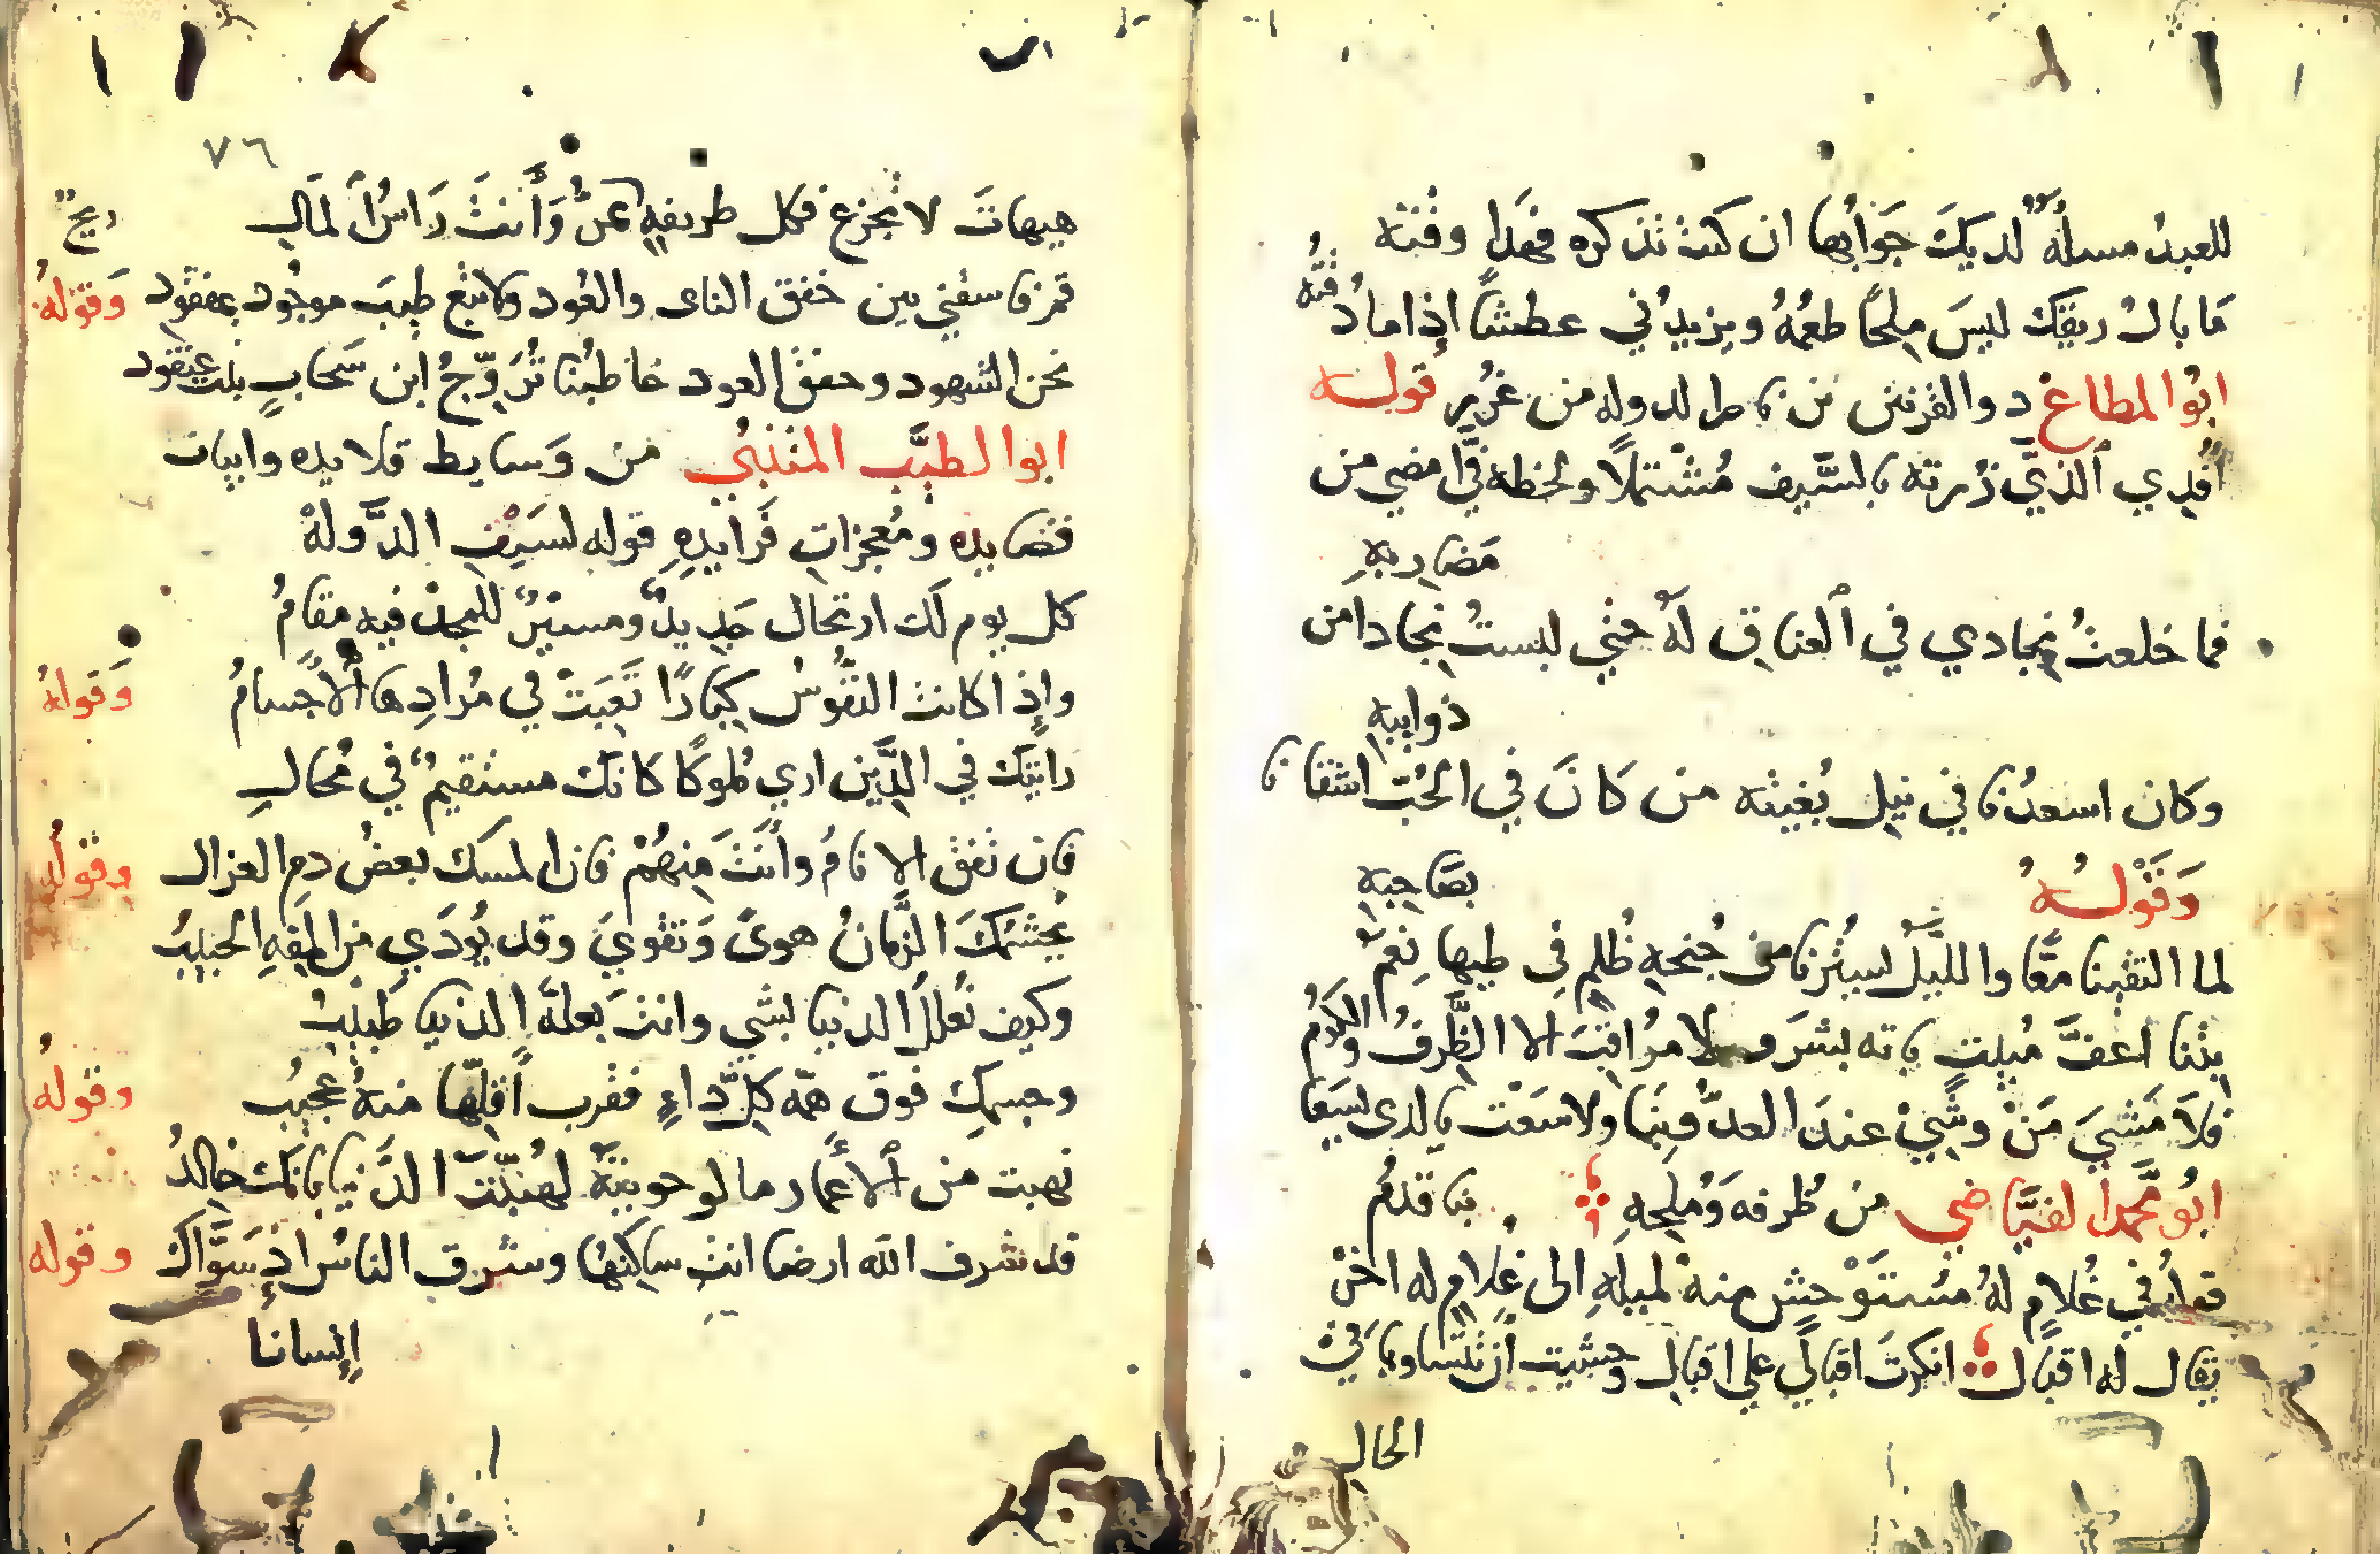 للعبد مسألةٌ لديكَ جَوَابُها ان كنتَ تذكره فهَذا وقتُه
مَا بالُ ريقِكَ ليسَ مِلحًا طعمُهُ ويزيدُني عطشًا إذا ما ذُقتُه
ابُوا لمطاع ذو القرنين بن ناصر لدوله من غُرَرِ قوله
أَفدِي الذي زُرته بالسَّيف مُشْتملًا ولحظه في امضى من
مَضارِبِهِ
فما خلعتُ نِجادي في العناقِ لهُ حتي لبستُ نِجادا من
ذوايبهِ
وكان اسعدُنا في نيل بُغيته من كانَ في الحُبّ اشقانا
بصَاحِبهِ
وَقَوْلُهُ
لما التقينا مَعًا والليلُ يستُرنا من جُنحِهِ ظُلمٌ في طيها نِعَمُ
بِتنا أعفَّ مَبيتٍ باته بشرَ ولا مراقبَ الا الظَّرفُ والكَرَمُ
فلَا مَشيَ مَنْ وشي عندَ العدُوّ بِنَا ولا سَعَت بالذى يسعَا
بنا قدمُ
ابُو محمد الفيَّاضي من ظُرفه وَمُلَحِهِ
قولُه في غُلامٍ لهُ مُستَوْحِشٍ منه لميلهِ الى غلامٍ له اخَرْ
يقال له اقبال انكرتَ اقبالي علي اقبالِ وخشيت أن تتساويا في
الحالِ
٧٦
هيهاتَ لا تجزع فكل طريفهٍ ريحٌ وَأنتَ رَاسُ المَالِ
قم فاسقني بين خفق الناى والعُود ولا تبع طيبَ موجُود بمفقُود وَقولهُ
نحن الشهود وخفق العود خاطبُنا نُزَوّجُ ابن سَحابٍ بنت عنقود
ابوا لطيَّب المتنبي من وَسايط قلايده وابيات
قصايده ومُعجزاتِ فَرايدِهِ قوله لسَيْفِ الدَّولهْ
كل يوم لَك ارتحال جَديدٌ ومسيرٌ للمجد فيهِ مقامُ
واذا كانت النفُوسُ كِبَارًا تَعِبَتْ في مُرادِها الأجسَامُ وَقولهُ
رايتك في الذين اري مُلوكًا كانكَ مستقيمٌ في مُحالِ
فان تفق الانامُ وأنتَ مِنهُمْ فان المسك بعضُ دمِ الغزال وقوله
يُجشّمكَ الزَّمانُ هوىً وَتقويَ وقد يُودَي من المِقهِ الحبيبُ
وكيف تُعللُ الدنيا بشي وانتَ بعلّةِ الدنيا طبيبُ
وجسمك فوق همّه كلّ دَاءٍ فقرب أقلّها منهُ عجيبُ وقوله
نهبت من الأعمار ما لو حويتهُ لهُنّيَت الدُّنيا بانكَ خالدُ
قد شرف الله ارضا انتَ ساكنها وشرف الناسَ إذ سَوَّاك وقوله
إنسانا